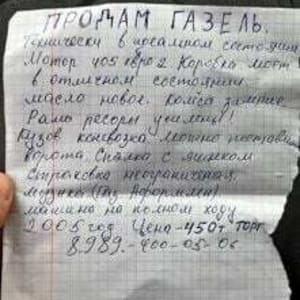 ПРОДАМ ГАЗЕЛЬ.
Технически в
Мотор 405 евро 2. Коробка мост
в отличном состоянии.
масло новое. колёса зимние
Рама ресоры усилены!
Кузов коневозка можно поставить
ворота. Спалка с ящиком
Страховка неограниченая,
музыка (Газ Аформлен)
машина на полном ходу
2005 год. Цена-450т. торг
8.989.-400-05-06